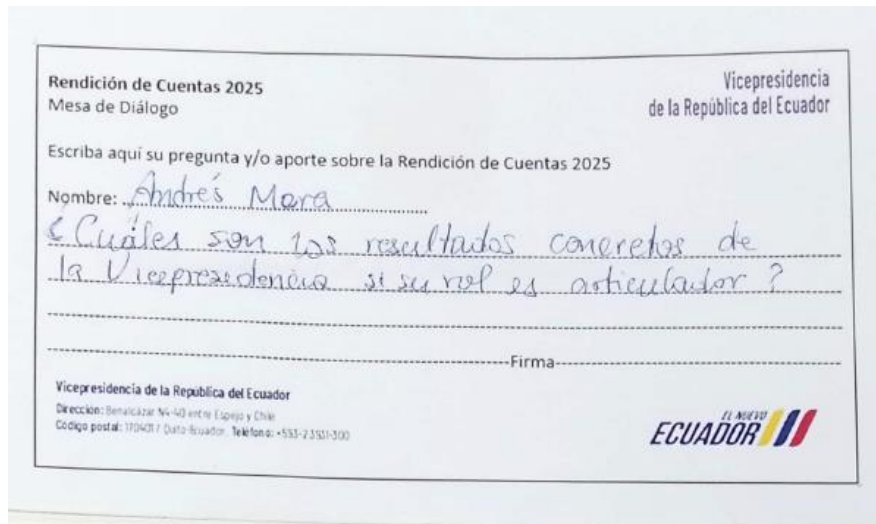 Rendición de Cuentas 2025
Mesa de Diálogo
Vicepresidencia
de la República del Ecuador
Escriba aquí su pregunta y/o aporte sobre la Rendición de Cuentas 2025
Nombre: Andrés Mora
¿Cuáles son los resultados concretos de
la Vicepresidencia si su rol es articulador?
Firma
Vicepresidencia de la República del Ecuador
Dirección: Benalcázar N4-40 entre Espejo y Chile
Código postal: 170401 / Quito-Ecuador. Teléfono: +593-2
EL NUEVO
ECUADOR